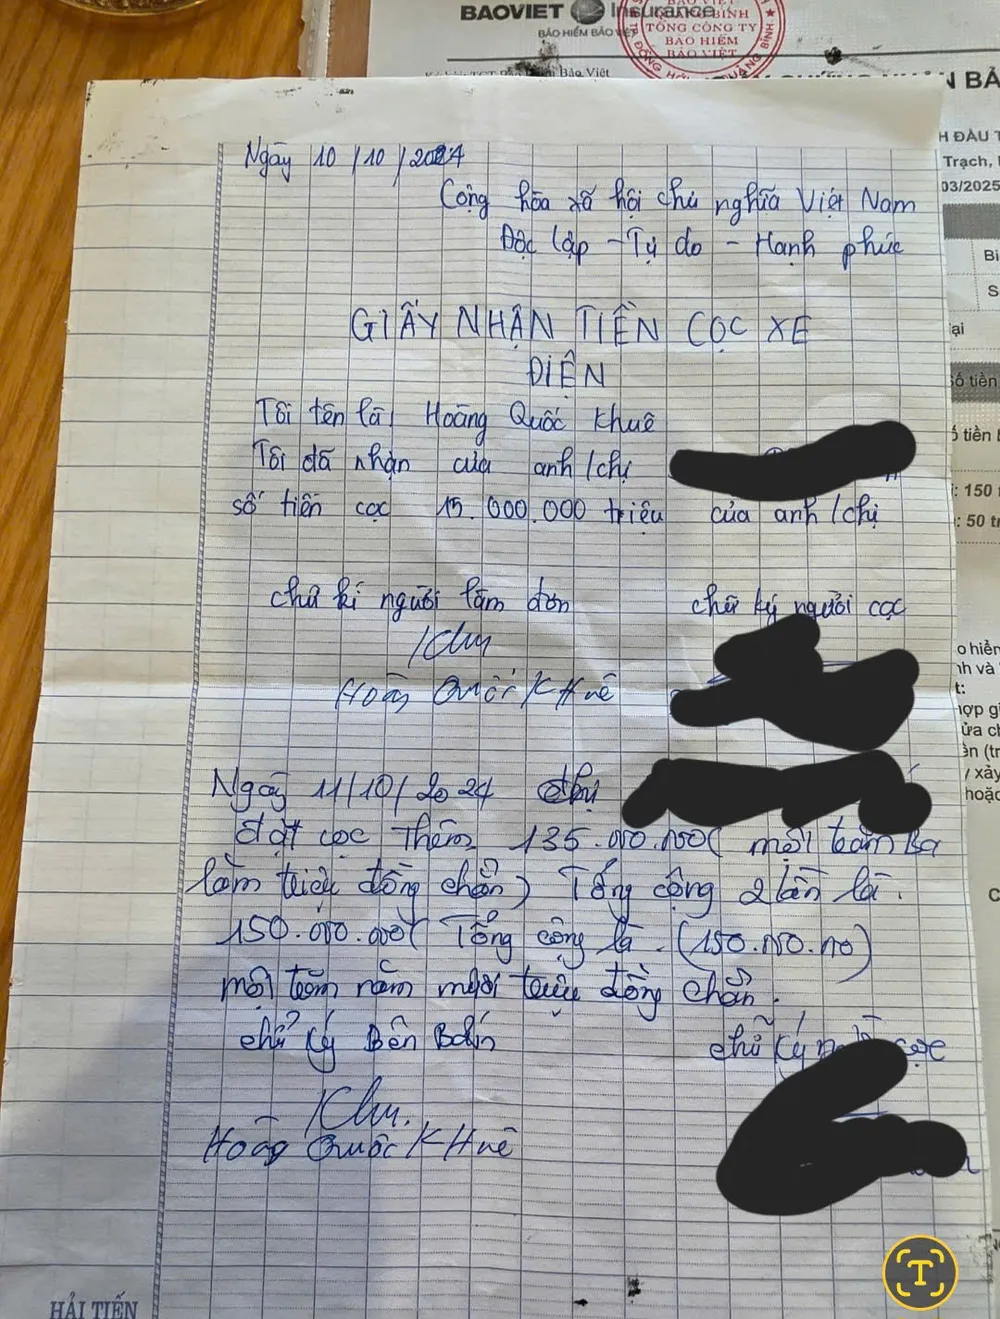 BAOVIET Insurance
BẢO HIỂM BẢO VIỆT
QUẢNG BÌNH
TỔNG CÔNG TY
BẢO HIỂM
BẢO VIỆT
Bảo Việt
N BẢ
H ĐẦU T
Trạch,
03/2025
Bi
S
ại
Số tiền
ố tiền b
: 150 t
: 50 tr
Ngày 10/10/2024
Cộng hòa xã hội chủ nghĩa Việt Nam
Độc lập - Tự do - Hạnh phúc
GIẤY NHẬN TIỀN CỌC XE
ĐIỆN
Tôi tên là, Hoàng Quốc Khuê
Tôi đã nhận của anh/chị
số tiền cọc 15.000.000 triệu của anh/chị
chữ kí người làm đơn chữ ký người cọc
Khu
Hoàng Quốc KHuê
Ngày 11/10/2024 chị
đặt cọc Thêm 135.000.000( một trăm Ba
lăm triệu đồng chẵn) Tổng cộng 2 lần là.
150.000.000( Tổng cộng là. (150.000.000)
một trăm năm mươi triệu đồng chẵn.
chữ ký Bên Bán chữ ký cọc
Khu.
Hoàng Quốc KHuê
o hiểm
nh và
t:
hợp gi
ửa ch
ên (tr
/ xảy
hoặc
C
HẢI TIẾN
T